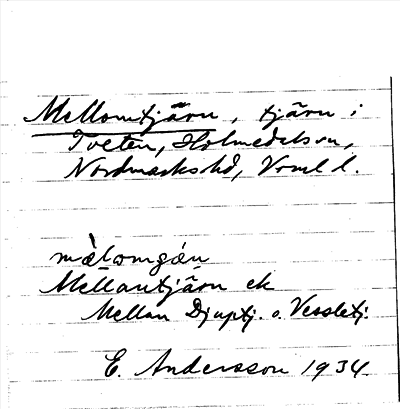 Mellomtjärn, tjärn i
Tveten, Holmedals sn,
Nordmarks hd, Vrml l.
mèlomgán
Mellantjärn ek
Mellan Djuptj. o. Vessletj.
E. Andersson 1934